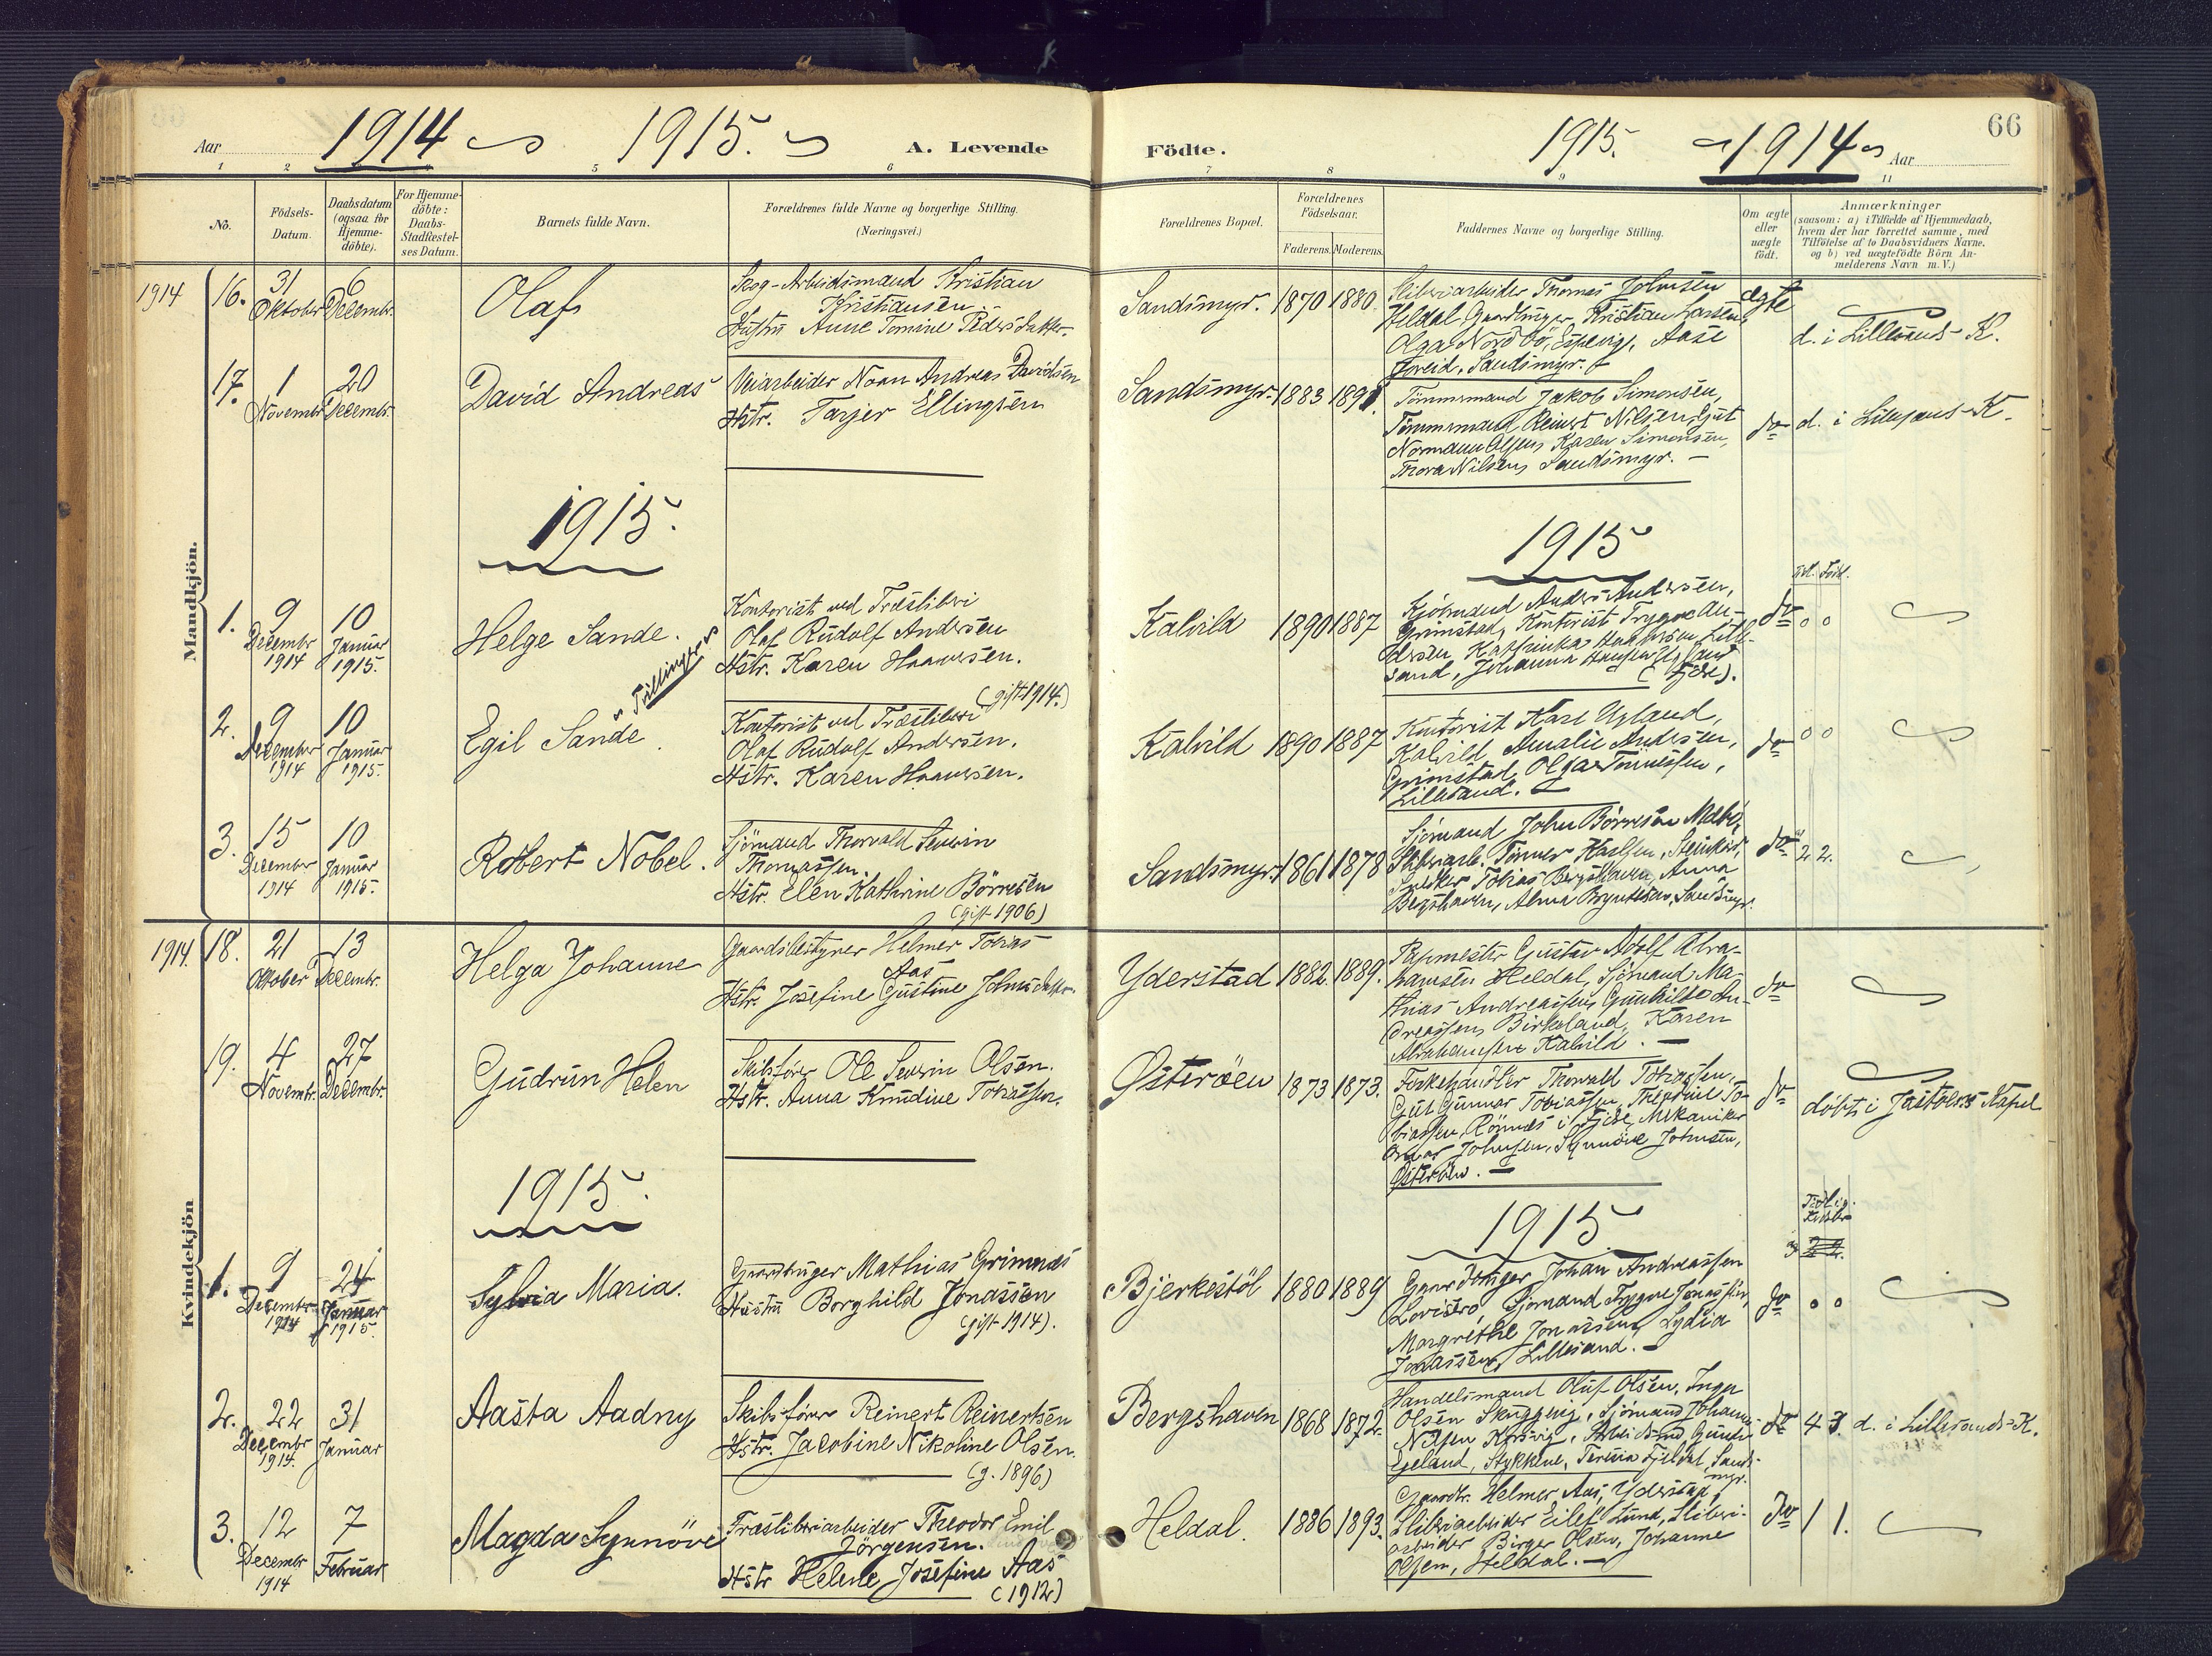 66
Aar 1914 1915. A. Levende Födte. 1915. 1914 Aar
1 2 5 6 7 8 9 11
No.
Födsels-
Datum.
Daabsdatum
(ogsaa for
Hjemme-
döbte).
For Hjemme-
döbte:
Daabs-
Stadfæstel-
ses Datum.
Barnets fulde Navn.
Forældrenes fulde Navne og borgerlige Stilling.
(Næringsvei.)
Forældrenes Bopæl.
Forældrenes
Födselsaar.
Faderens. Moderens.
Faddernes Navne og borgerlige Stilling.
Om ægte
eller
uægte
födt.
Anmærkninger
(saasom: a) i Tilfælde af Hjemmedaab,
hvem der har forrettet samme, med
Tilföielse af to Daabsvidners Navne.
og b) ved uægtefödte Börn An-
melderens Navn m. V.)
Mandkjön.
1914 16. 31 Oktober 6 Decembr.
Olaf
Skog-Arbeidsmand Kristian
Kristiansen
Hustru Anne Tomine Pedersdatter.
Sandsmyr. 1870 1880.
Sliberiarbeider Thomas Johnsen
Heldal, Gaardbruger Kristian Larsen,
Olga Nordbö, Espevig, Aase
Foreid, Sandsmyr.
ægte
d. i Lillesands K.
17. 1 Novembr. 20 Decembr.
David Andreas
Veiarbeider Noan Andreas Davidsen
Hstr. Tarjer Ellingsen
Sandsmyr. 1883 1891.
Tömmermand Jakob Simonsen,
Tömmermand Reinert Nilsen, Gut
Normann Olsen, Karen Simonsen,
Thora Nilsen, Sandsmyr.
do
d. i Lillesands K.
1915. 1915
1. 9 Decembr 1914 10 Januar 1915.
Helge Sande.
Tvillinger
Kontorist ved Træsliberi
Olaf Rudolf Andersen
Hstr. Karen Haanersen.
(gift 1914.)
Kalvild 1890 1887
Sjömand Anders Andersen,
Grimstad, Kontorist Trygve An-
dersen, Kathinka Lille-
sand, Johanna
(Fjære).
do 0 0
2. 9 December 1914 10 Januar 1915.
Egil Sande.
Kontorist ved Træsliberi
Olaf Rudolf Andersen.
Hstr. Karen Haanersen.
Kalvild 1890 1887
Kontorist Karl Ugland,
Kalvild, Amalie Andersen,
Grimstad, Olga Tönnessen,
Lillesand.
do 0 0
3. 15 December 1914 10 Januar 1915.
Robert Nobel.
Sjömand Thorvald Severin
Thomassen.
Hstr. Elen Kathrine Börresen
(gift 1906)
Sandsmyr. 1861 1878
Sjömand John Börresen Mebö,
Sliberiarb. Tönnes Karlsen, Steinkar,
Snedker Tobias Bergshaven, Anna
Bergshaven, Alma Sandsmyr.
do 2 2.
Kvindekjön
1914. 18. 21 Oktober 13 Decembr.
Helga Johanne
Gaardsbestyrer Helmer Tobias
Aas
Hstr. Josefine Gustine Johnsdatter.
Yderstad 1882. 1889.
Papmester Gustav Adolf Abra-
hamsen Heldal, Sjömand Ma-
thias Andreassen, Gunhilde An-
dreassen, Birkeland, Karen
Abrahamsen Kalvild.
do
19. 4 Novembr. 27 Decembr.
Gudrun Helen
Skibsförer Ole Severin Olsen.
Hstr. Anna Knudine Tobiassen.
Österöen 1873 1873.
Thorvald Tobiassen,
Gut Gunnar Tobiassen, Theodine To-
biassen, Rönnes i Fjære, Mekaniker
Johnsen, Synnöve Johnsen,
Österöen.
do
döbt i Justöens Kapel
1915. 1915
1. 9 Decembr 1914 24 Januar 1915.
Sylvia Maria.
Gaardbruger Mathias Grimnes
Hustru Borghild Jonassen
(gift 1914).
Bjerkestöl 1880 1889
Gaardbruger Johan Andreassen
Sjömand Trygve Jonassen,
Margrethe Jonassen, Lydia
Jonassen, Lillesand.
do 0 0
2. 22 Decembr 1914. 31 Januar
Aasta Aadny
Skibsförer Reinert Reinertsen
Hstr. Jacobine Nikoline Olsen.
(g. 1896)
Bergshaven 1868 1872.
Handelsmand Oluf Olsen, Inga
Olsen Skuggevig, Sjömand Johannes
Nilsen Arbeidsmd. Gunder
Egeland, Stykkene, Teresia Fjeldal, Sands-
myr.
do 4 3. d. i Lillesands K.
3. 12 Decembr 1914 7 Februar
Magda Synnöve
Træsliberiarbeider Theodor Emil
Jörgensen.
Hstr Helene Josefine Aas
(1912)
Heldal. 1886 1893.
Gaardbr. Helmer Aas, Yderstad,
Sliberiarbeider Eilef Lund, Sliberi-
arbeider Birger Olsen, Johanne
Olsen, Heldal.
do 1 1.